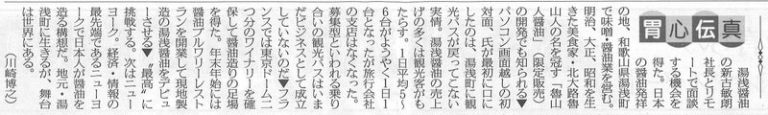 胃心伝真
湯浅醤油
の新古敏朗
社長とリモ
ートで面談
する機会を
得た。日本
の醤油発祥
の地、和歌山県湯浅町
で味噌・醤油業を営む。
明治、大正、昭和を生
きた美食家・北大路魯
山人の名を冠す「魯山
人醤油」（限定販売）
の開発でも知られる▼
パソコン画面越しの初
対面、氏が最初に口に
したのは、湯浅町に観
光バスが戻ってこない
実情。湯浅醤油の売上
げの多くは観光客がも
たらす。1日平均5〜
6台がようやく1日1
台となったが旅行会社
の支店はなくなった。
募集型といわれる乗り
合いの観光バスはいま
だビジネスとして成立
していないのだ▼フラ
ンスでは東京ドーム二
つ分のワイナリーを確
保して醤油造りの足場
を得た。年末年始には
醤油プルフリーレスト
ランを開業して現地製
造の湯浅醤油をデビュ
ーさせる▼〝最高〟に
挑戦する。次はニュー
ヨーク。経済・情報の
最先端であるニューヨ
ークで日本人が醤油を
造る構想だ。地元・湯
浅町に生きるが、舞台
は世界にある。
（川崎博之）